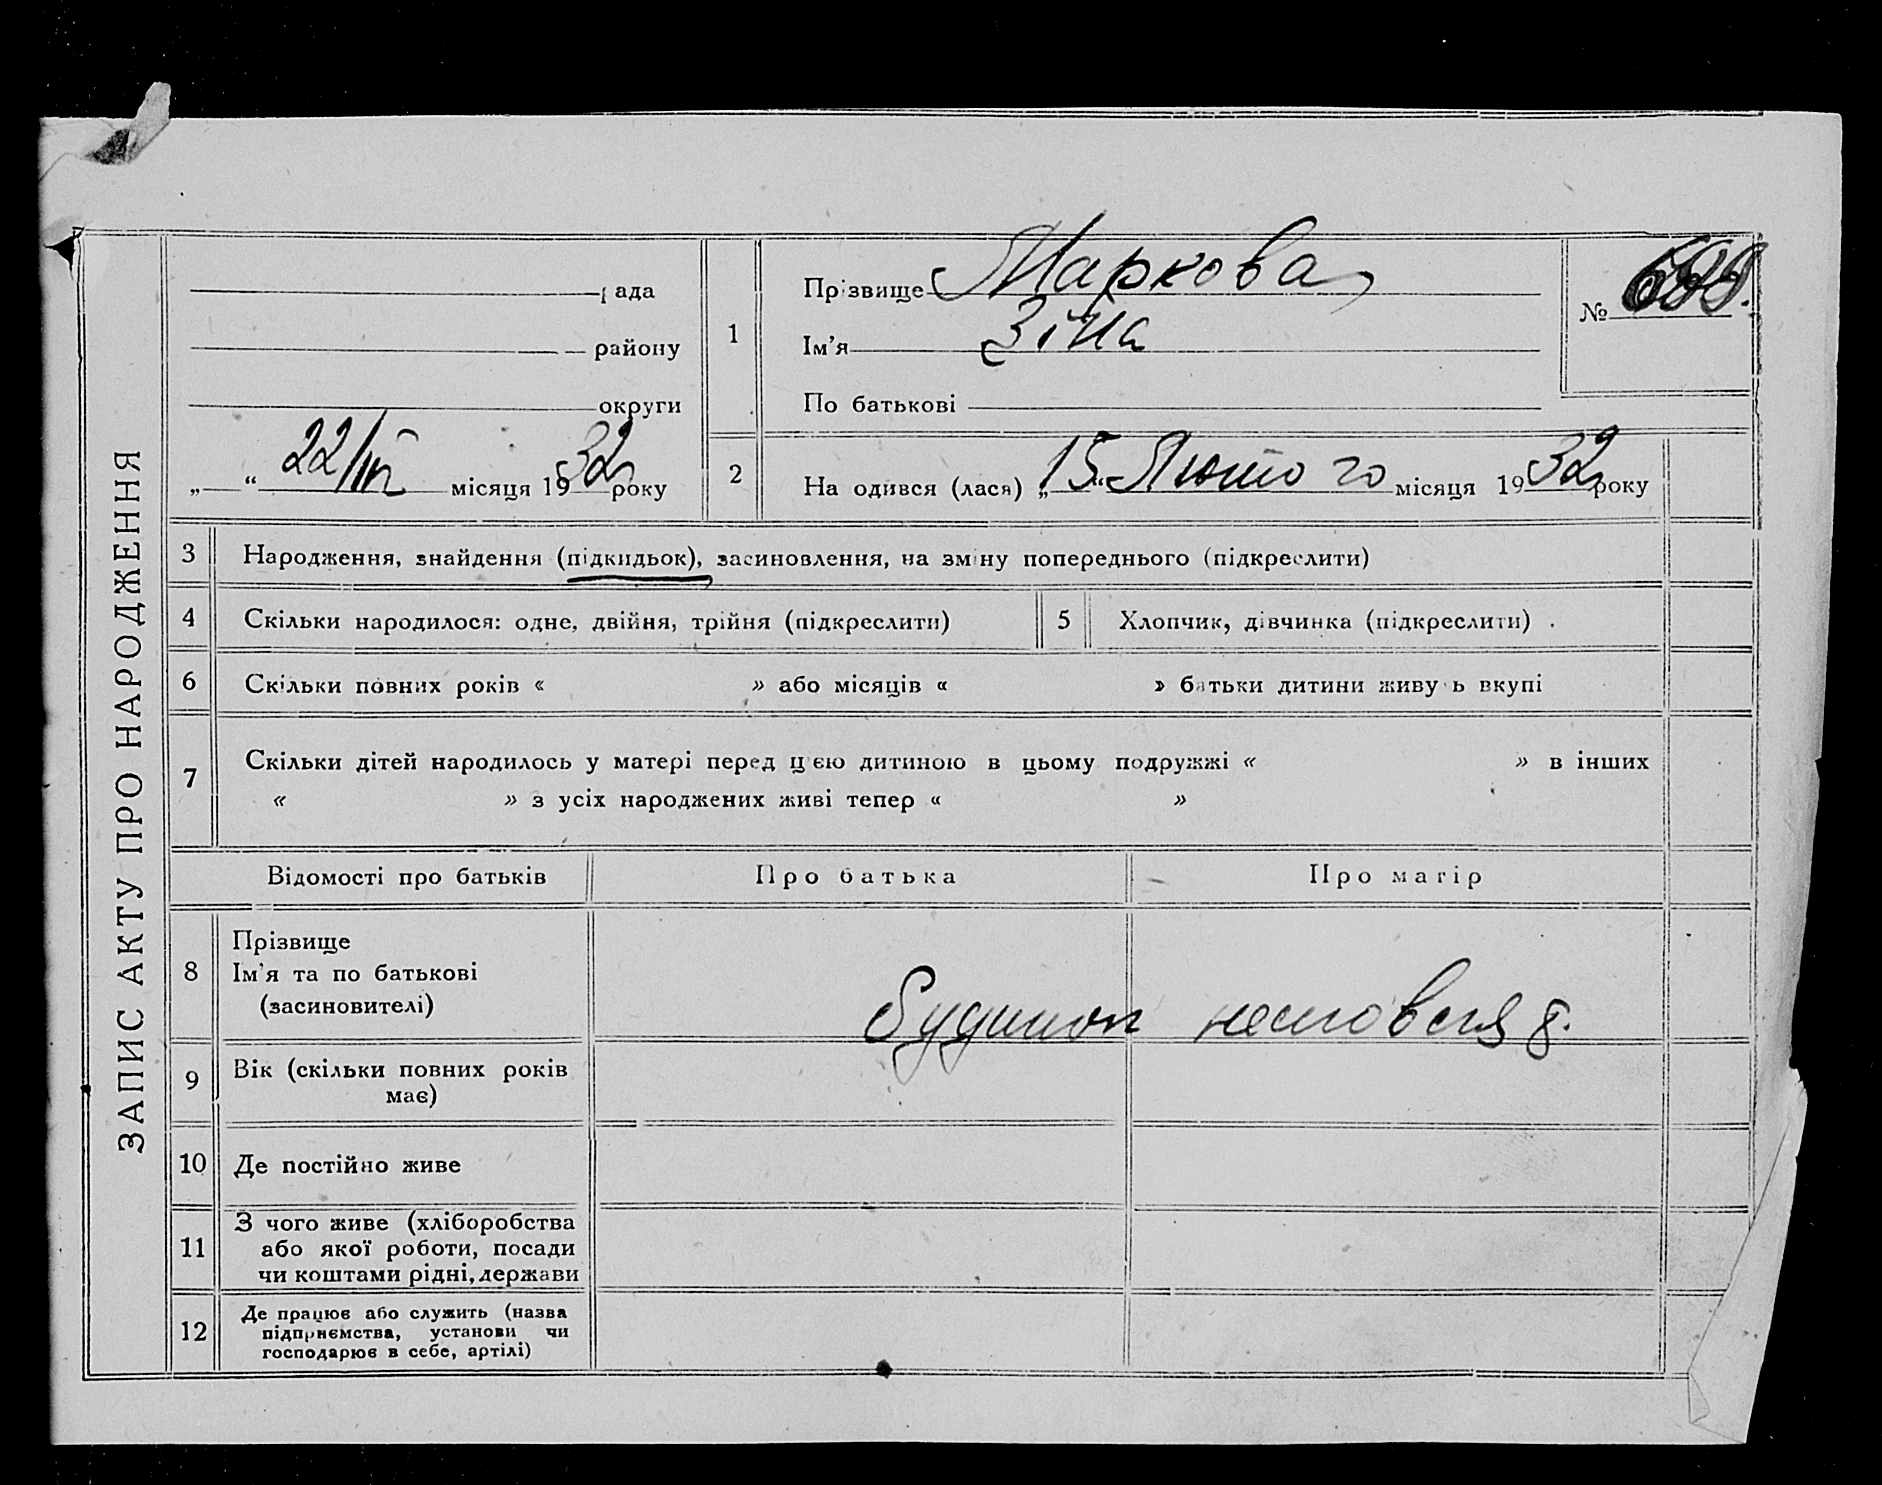 ЗАПИС АКТУ ПРО НАРОДЖЕННЯ
рада
району
округи
„ “ 22/III місяця 1932 року
1
Прізвище Маркова
Ім’я Зіна
По батькові
№
2
На одився (лася) „15“ Лютого місяця 1932 року
3 Народження, знайдення (підкидьок), засиновлення, на зміну попереднього (підкреслити)
4 Скільки народилося: одне, двійня, трійня (підкреслити)
5 Хлопчик, дівчинка (підкреслити)
6 Скільки повних років « » або місяців « » батьки дитини живуть вкупі
7 Скільки дітей народилось у матері перед цією дитиною в цьому подружжі « » в інших
« » з усіх народжених живі тепер « »
Відомості про батьків
Про батька
Про матір
8 Прізвище
Ім’я та по батькові
(засиновителі)
Будинок немовля
9 Вік (скільки повних років
має)
10 Де постійно живе
11 З чого живе (хліборобства
або якої роботи, посади
чи коштами рідні, держави
12 Де працює або служить (назва
підприємства, установи чи
господарює в себе, артілі)